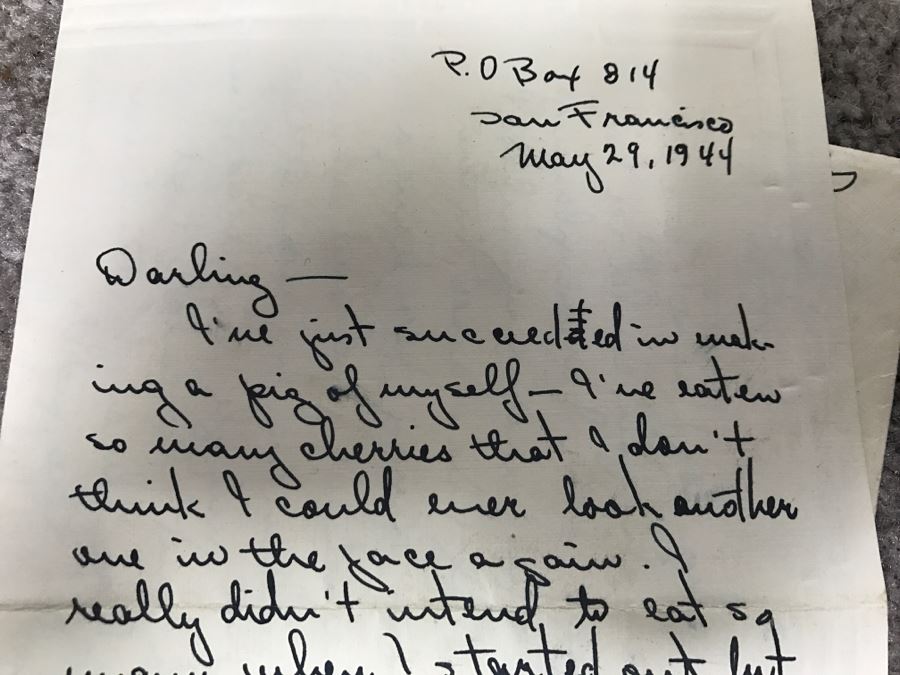 P.O Box 814
San Francisco
May 29, 1944
Darling —
I've just succeeded in mak-
ing a pig of myself — I've eaten
so many cherries that I don't
think I could ever look another
one in the face again. I
really didn't intend to eat so
many when I started out but